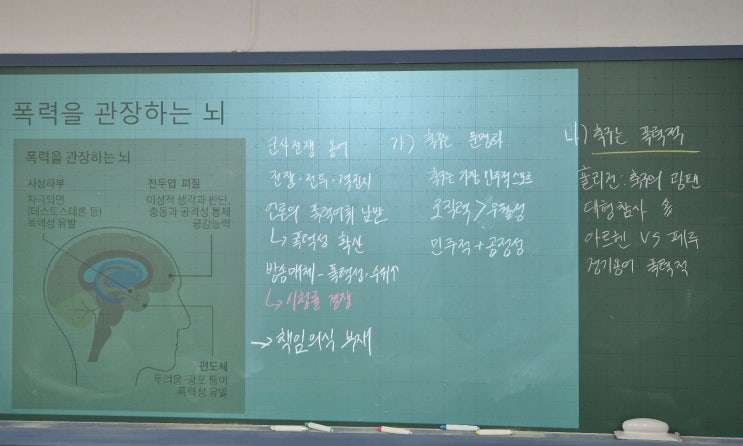 폭력을 관장하는 뇌
폭력을 관장하는 뇌
시상하부
자극되면
(테스토스테론 등)
폭력성 유발
전두엽 피질
이성적 생각과 판단,
충동과 공격성 통제
공감능력
편도체
두려움·공포 통제
폭력성 유발
군사전쟁 용어
전쟁·전투·격전지
언론의 폭력어휘 남발
↳ 폭력성 확산
방송매체 - 폭력성·수위↑
↳ 시청률 경쟁
→ 책임의식 부재
가) 축구는 문명화
축구는 가장 민주적 스포츠
조직력 > 우월성
민주적 + 공정성
나) 축구는 폭력적
훌리건 : 축구의 광팬
대형참사
아르헨 VS 페루
경기용어 폭력적